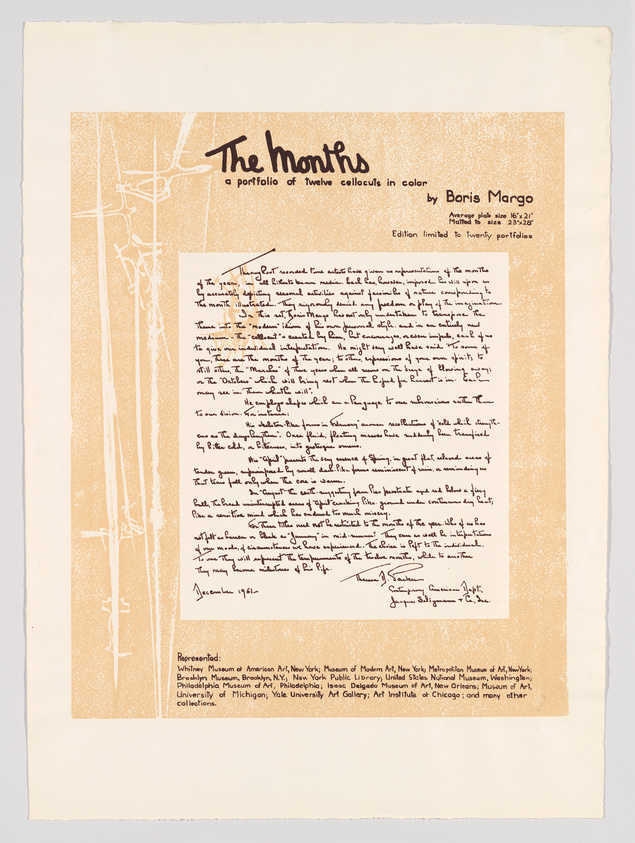 The Months
a portfolio of twelve cellocuts in color
by Boris Margo
Average plate size 16"x 21"
Matted to size 23"x28"
Edition limited to twenty portfolios
Throughout recorded time artists have given us representations of the months
of the year, in all hitherto known media. Each has, however, imposed his will upon us
by accurately depicting seasonal activities against facsimile of nature corresponding to
the month illustrated. They rigorously denied any freedom or play of the imagination.
In this set, Boris Margo has not only undertaken to transpose the
theme into the "modern" idiom of his own personal style and in an entirely new
medium - the "cellocut" - created by him, but encourages, or even impels, each of us
to give our individual interpretation. He might very well have said: "To some of
you, these are the months of the year; to others, expressions of your own spirit; to
still others, the "Marches" of those years when all seems on the verge of blowing away;
or the "Octobers" which will bring rest when the hoped for harvest is in. Each
may see in them what he will".
He employs shapes which are a language to our subconscious rather than
to our vision. For instance:
His skeleton-like forms in "February" arouse recollections of "cold which strength-
ens as the days lengthen". Once fluid, floating masses have suddenly been transfixed
by bitter cold, or bitterness, into grotesque omens.
His "April" presents the very essence of Spring, in great flat, colored areas of
tender green, superimposed by small dark forms reminiscent of rain, or reminding us
that tears fall only when the core is warm.
In "August" the earth-suggesting form lies prostrate and red below a fiery
ball, the broad uninterrupted areas of "April" cracking like ground under continuous dry heat;
like a sensitive mind which has endured too much misery.
For these titles need not be restricted to the months of the year. Who of us has
not felt as barren or bleak as "January" in mid-summer? They can as well be interpretations
of our moods, of circumstances we have experienced. The choice is left to the individual.
To one they will represent the temperaments of the twelve months, while to another
they may become milestones of his life.
December 1951
Contemporary American Dept.
Jacques Seligmann & Co., Inc.
Represented:
Whitney Museum of American Art, New York; Museum of Modern Art, New York; Metropolitan Museum of Art, New York;
Brooklyn Museum, Brooklyn, N.Y.; New York Public Library; United States National Museum, Washington;
Philadelphia Museum of Art, Philadelphia; Isaac Delgado Museum of Art, New Orleans; Museum of Art,
University of Michigan; Yale University Art Gallery; Art Institute of Chicago; and many other
collections.